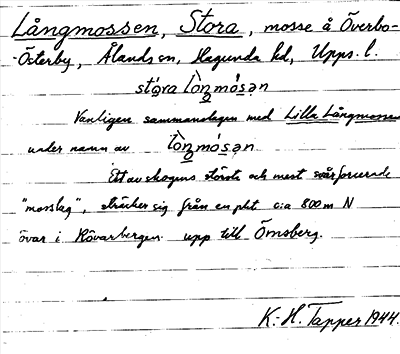 Långmossen, Stora, mosse å Överbo-
-Österby, Ålands sn, Hagunda hd, Upps. l.
stóra lòŋmósən
Vanligen sammanslagen med Lilla Långmossen
under namn av lòŋmósən
Ett av skogens största och mest svårforcerade
"mosslag", sträcker sig från en pkt c:a 800 m N
övar i Rövarbergen upp till Örnsberg.
K.-H. Tapper 1944.